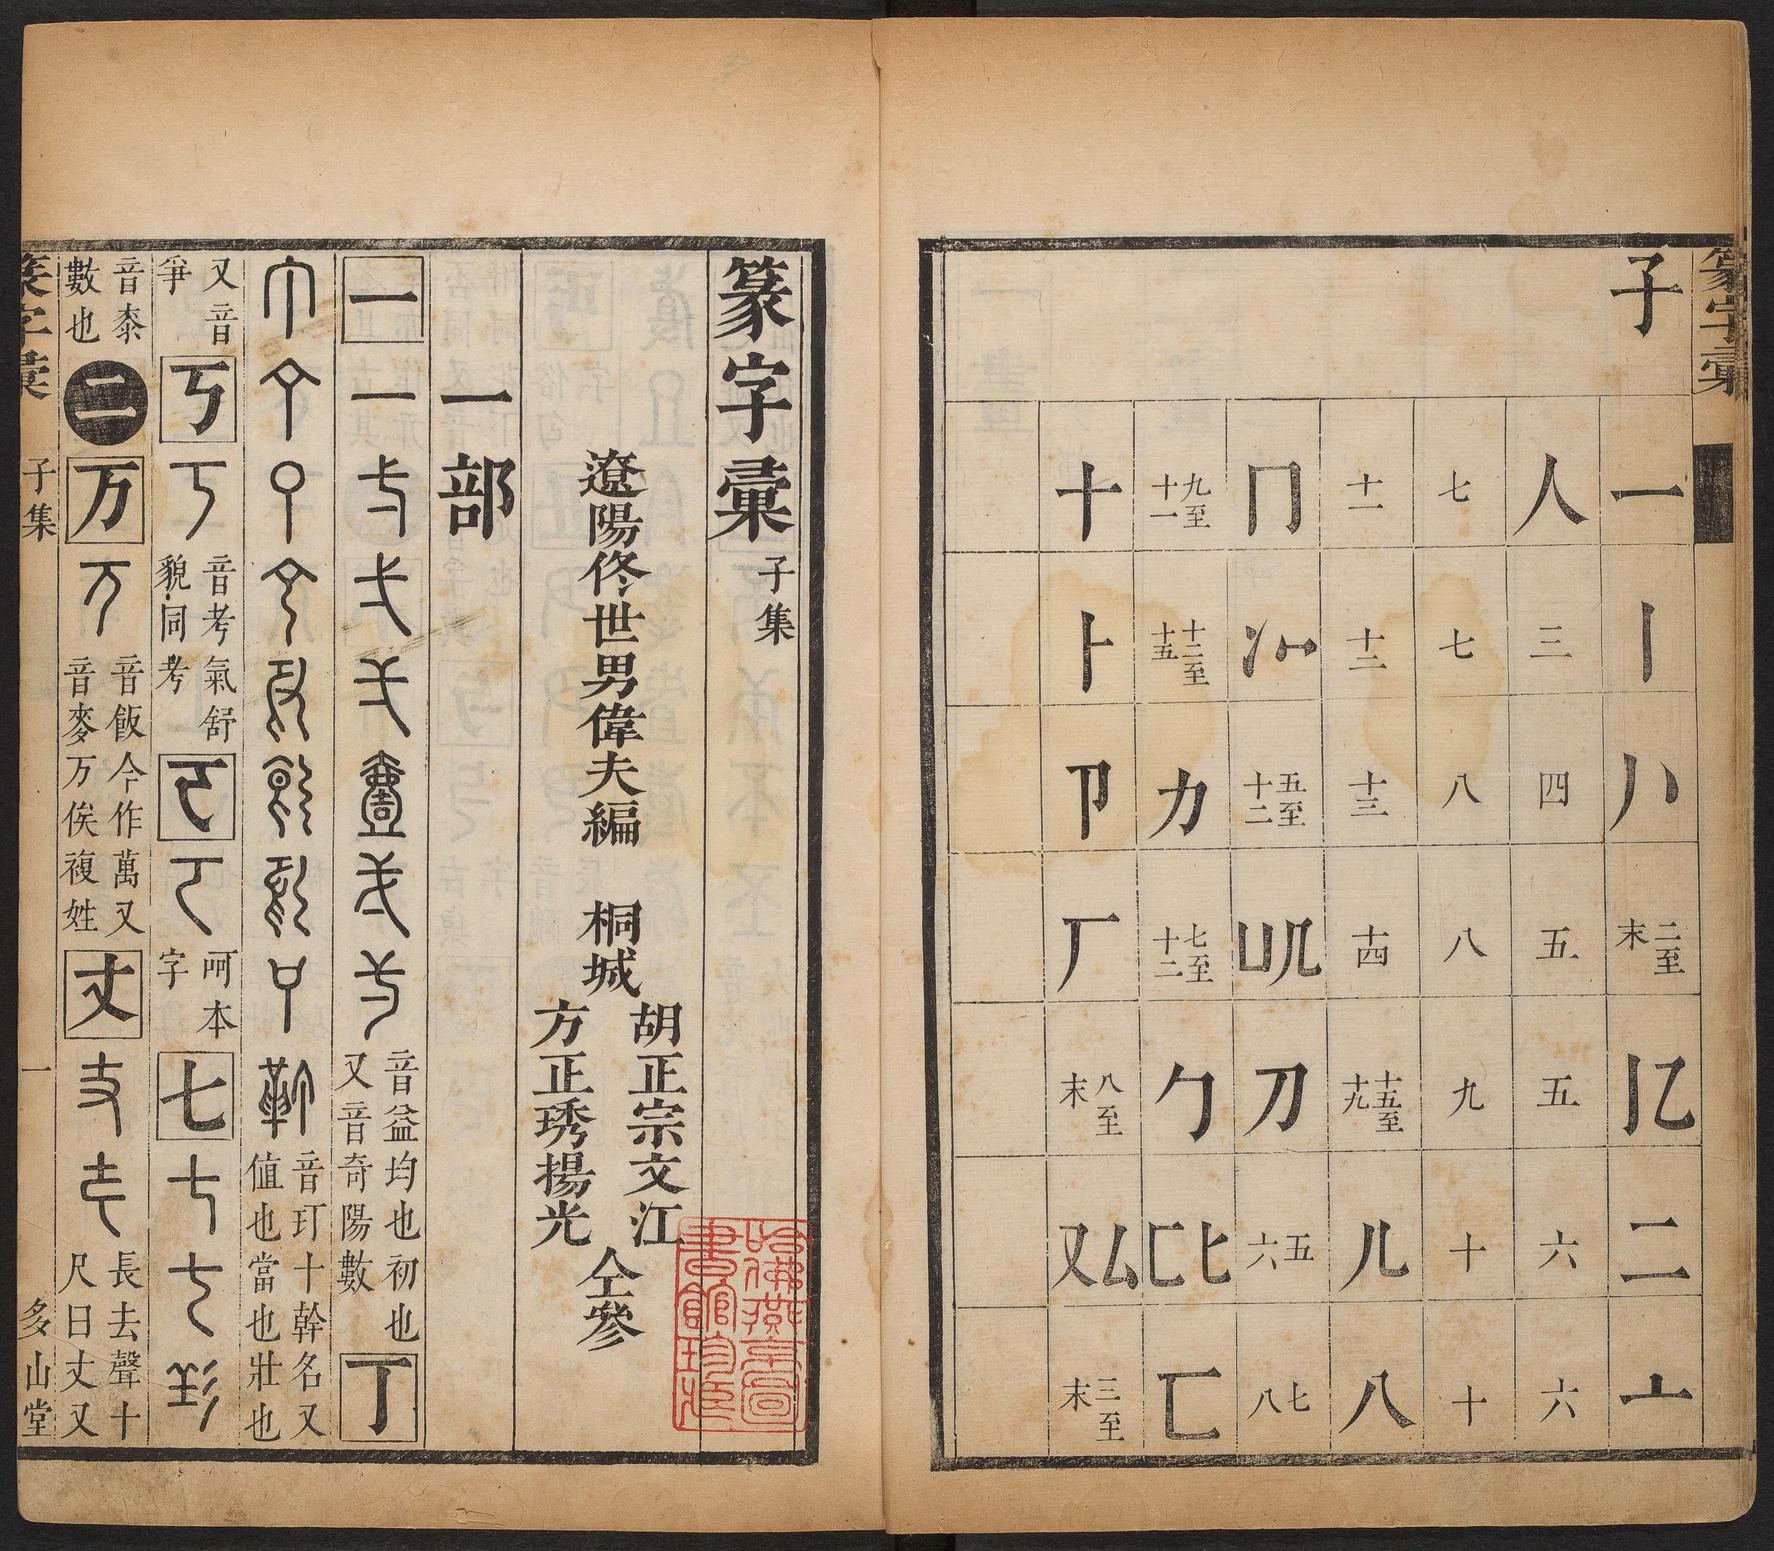 篆字彙
子
一 丨 丿丶 二至末 乙亅 二 亠
人 三 四 五 五 六 六
七 七 八 八 九 十 十
十一 十二 十三 十四 十五至十九 儿 八
冂 冫冖 五至十二 几凵 刀 五六 七八
九至十一 十二至十五 力 七至十二 勹 匕匚 匸
十 卜 卩 厂 八至末 厶又 三至末
篆字彙 子集
遼陽佟世男偉夫編 桐城 胡正宗文江 方正琇揚光 仝參
哈佛燕京圖書館珍藏
一部
一 一 音益均也初也又音奇陽數 丁
音玎十幹名又值也當也壯也
又音爭 丂 音考氣舒貌同考 呵本字 七
音桼數也 二 万 音飯今作萬又音麥万俟複姓 丈 長去聲十尺曰丈又
篆字彙 子集 一 多山堂